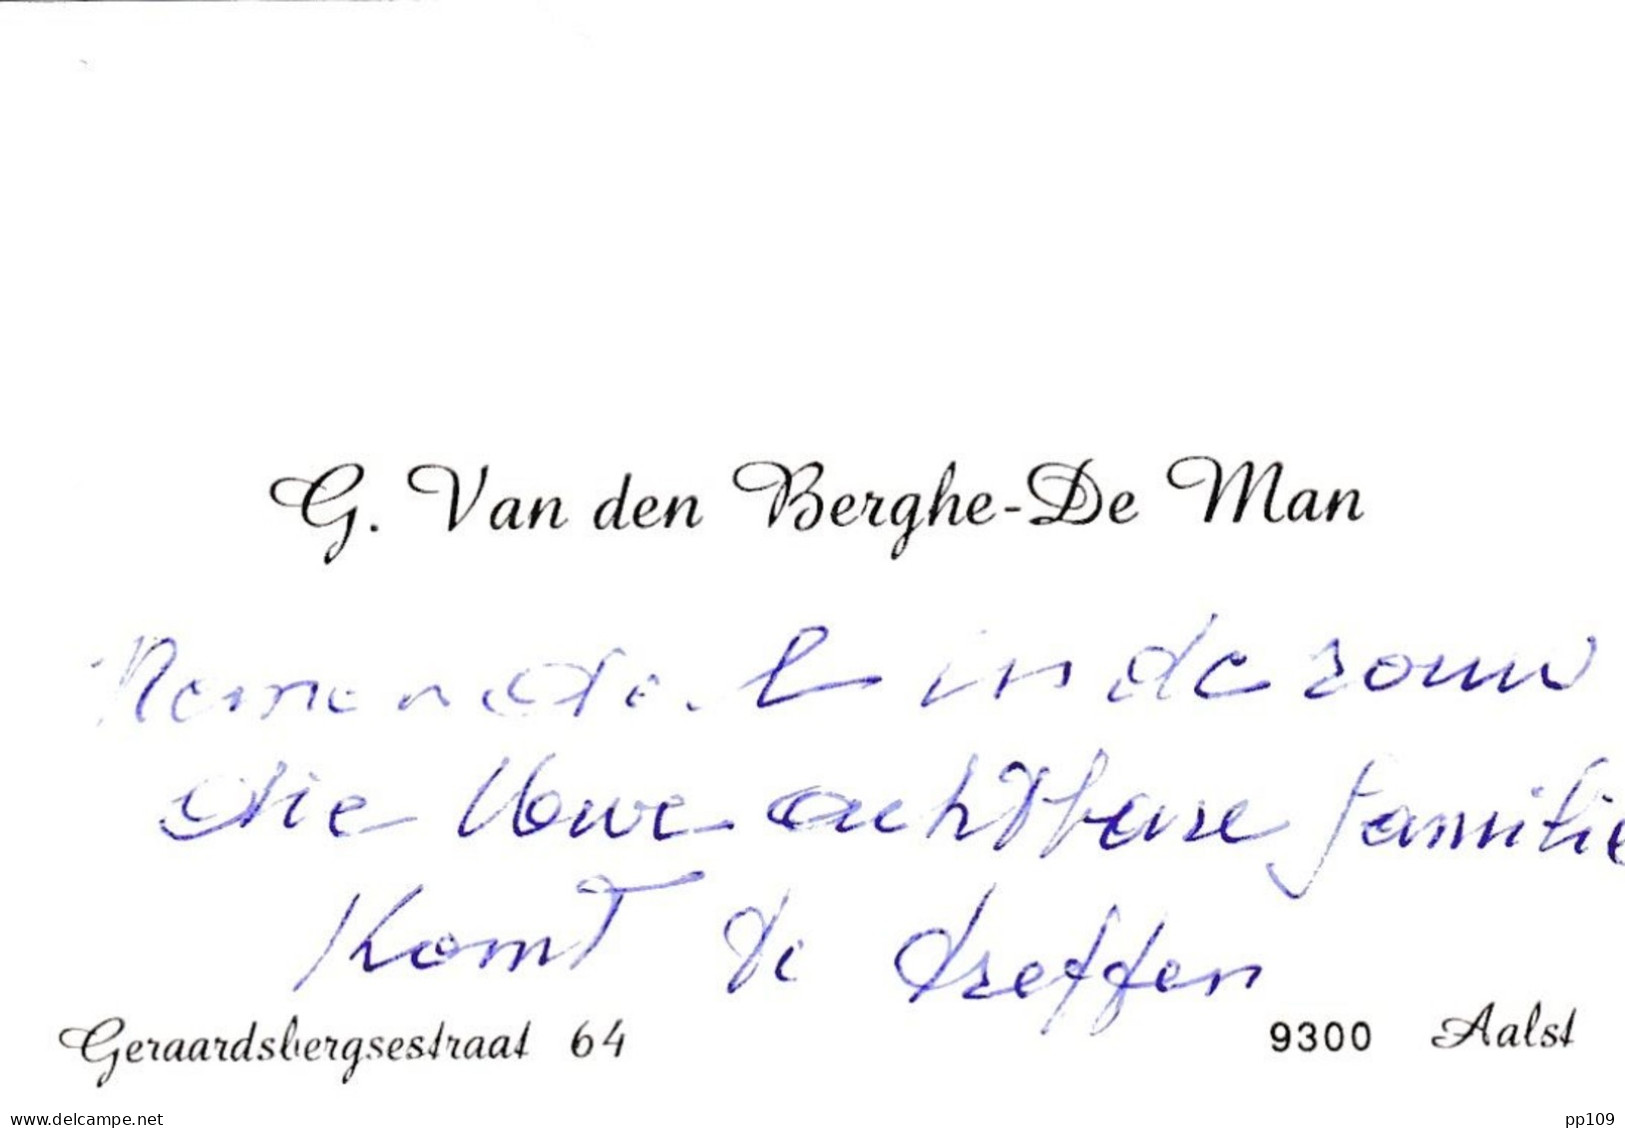 G. Van den Berghe-De Man
Nemen deel in de rouw
die Uwe achtbare familie
komt te treffen
Geraardsbergsestraat 64 9300 Aalst
www.delcampe.net pp109